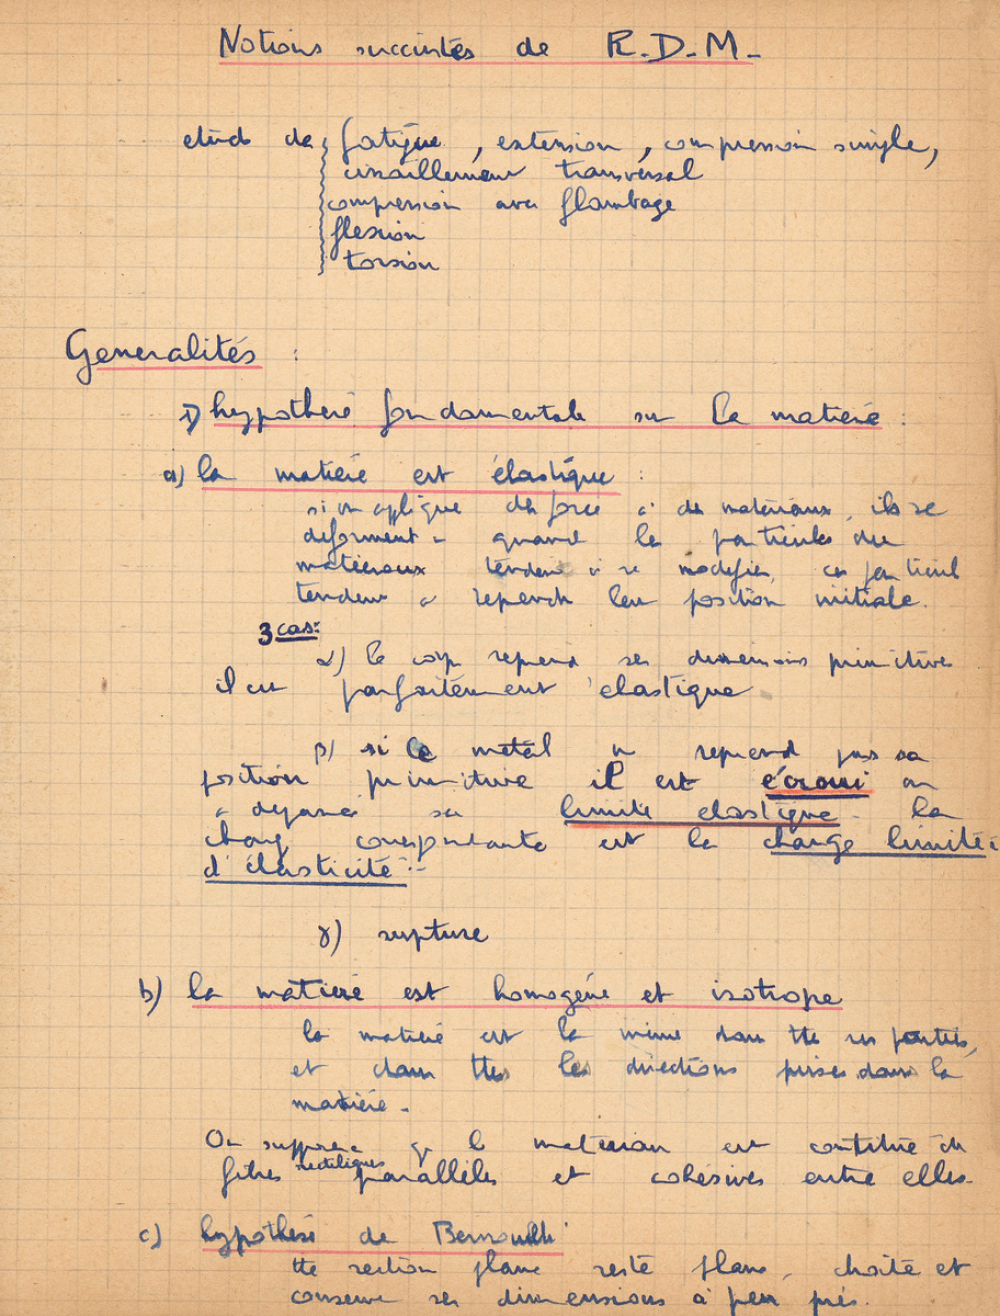 Notions succintes de R.D.M.
etude de fatigue, extension, compression simple,
cisaillement transversal
compression avec flambage
flexion
torsion
Generalités :
1) hypothese fondamentale sur la matiere :
a) la matiere est élastique :
si on applique des forces à des materiaux, ils se
deforment - quand les particules du
materiaux tendent à se modifier, ces particules
tendent a reprendre leur position initiale.
3 cas:
α) le corps reprend ses dimensions primitives
il est parfaitement elastique
β) si le metal ne reprend pas sa
position primitive il est écroui on
a depassé sa limite elastique - la
charge correspondante est la charge limite
d'élasticité -
γ) rupture
b) la matiere est homogéne et isotrope
la matiere est la même dans tte ses parties,
et dans ttes les directions prises dans la
matière -
On suppose q le materiau est constitué de
fibres rectilignes paralléles et cohésives entre elles.
c) hypothèse de Bernoulli
tte section plane reste plane, droite et
conserve ses dimensions à peu prés.